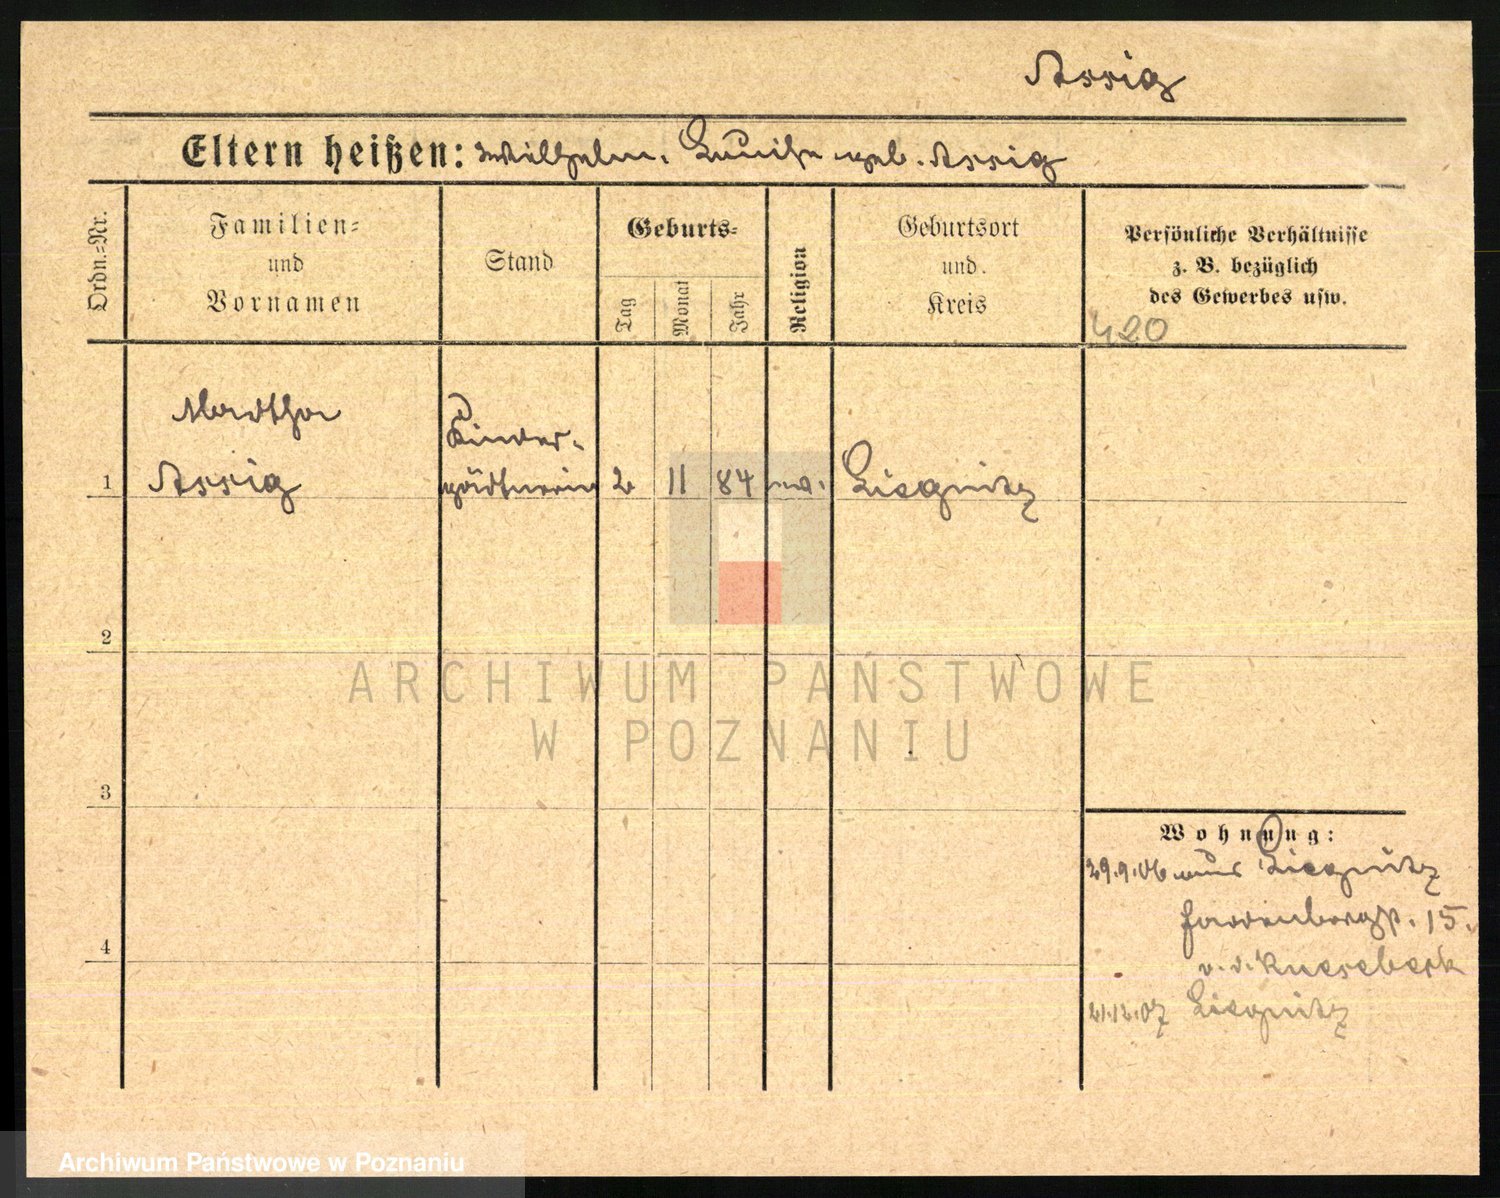 Assig
Eltern heißen: Wilhelm. Luise geb. Assig
Ordn.-Nr.
Familien-
und
Vornamen
Stand
Geburts-
Tag
Monat
Jahr
Religion
Geburtsort
und
Kreis
Persönliche Verhältnisse
z. B. bezüglich
des Gewerbes usw.
420
Martha
Kinder-
1 Assig gärtnerin 2 11 84 ev. Liegnitz
2
3
4
Wohnung:
29.9.06 aus Liegnitz
15.
v. d. Knesebeck
21.12.07 Liegnitz
ARCHIWUM PAŃSTWOWE
W POZNANIU
Archiwum Państwowe w Poznaniu